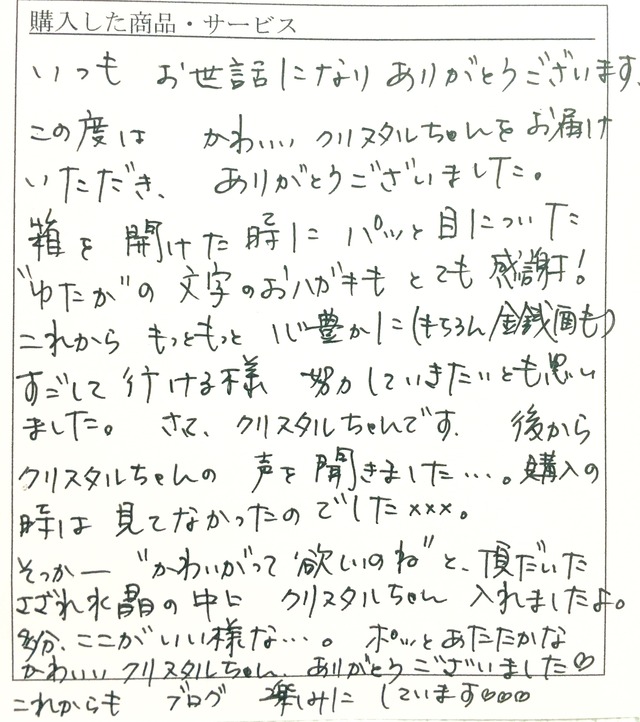 購入した商品・サービス
いつも お世話になり ありがとうございます.
この度は かわいい クリスタルちゃんをお届け
いただき、 ありがとうございました。
箱を 開けた時に パッと目についた
"ゆたか"の 文字のおハガキも とても 感謝!
これから もっともっと 心豊かに(もちろん金銭面も)
すごして行ける様 努力していきたいとも思い
ました。 さて、クリスタルちゃんです. 後から
クリスタルちゃんの 声を聞きました…。購入の
時は 見てなかったのでした×××。
そっかー "かわいがって欲しいのね"と、頂だいた
さざれ水晶の中に クリスタルちゃん 入れましたよ。
多分、ここがいい様な…。 ポッとあたたかな
かわいい クリスタルちゃん ありがとうございました♡
これからも ブログ 楽しみに しています♡♡♡